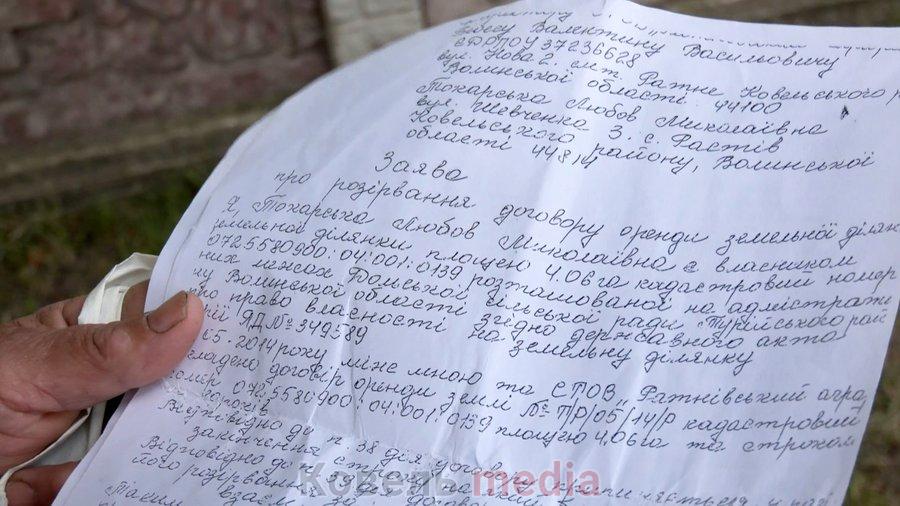 Бебесу Валентину Васильовичу
ЄДРПОУ 37236628
вул. Нова 2. смт. Ратне Ковельського р
Волинської області. 44100
Токарська Любов Миколаївна
вул. Шевченка 3. с.
Ковельського району, Волинської
області 44814
Заява
про розірвання договору оренди земельної ділян
Я, Токарська Любов Миколаївна є власником
земельної ділянки площею 4.06 га кадастровий номер
0725580900:04:001:0139 розташованої на адмістраті
них межах сільської ради Турійського рай
ну Волинської області згідно державного акта
про право власності на земельну ділянку
рій ЯД № 349589
05. 2014 року між мною та СТОВ „Ратнівський аграр
кладено договір оренди землі № ТР/05/14/Р кадастровий
номер 0725580900:04:001:0139 площею 4,06 га та строком
років
Відповідно до п. 38 дія договору
закінчення строку на який
Відповідно до
його розірвання
Таким
Ковель media